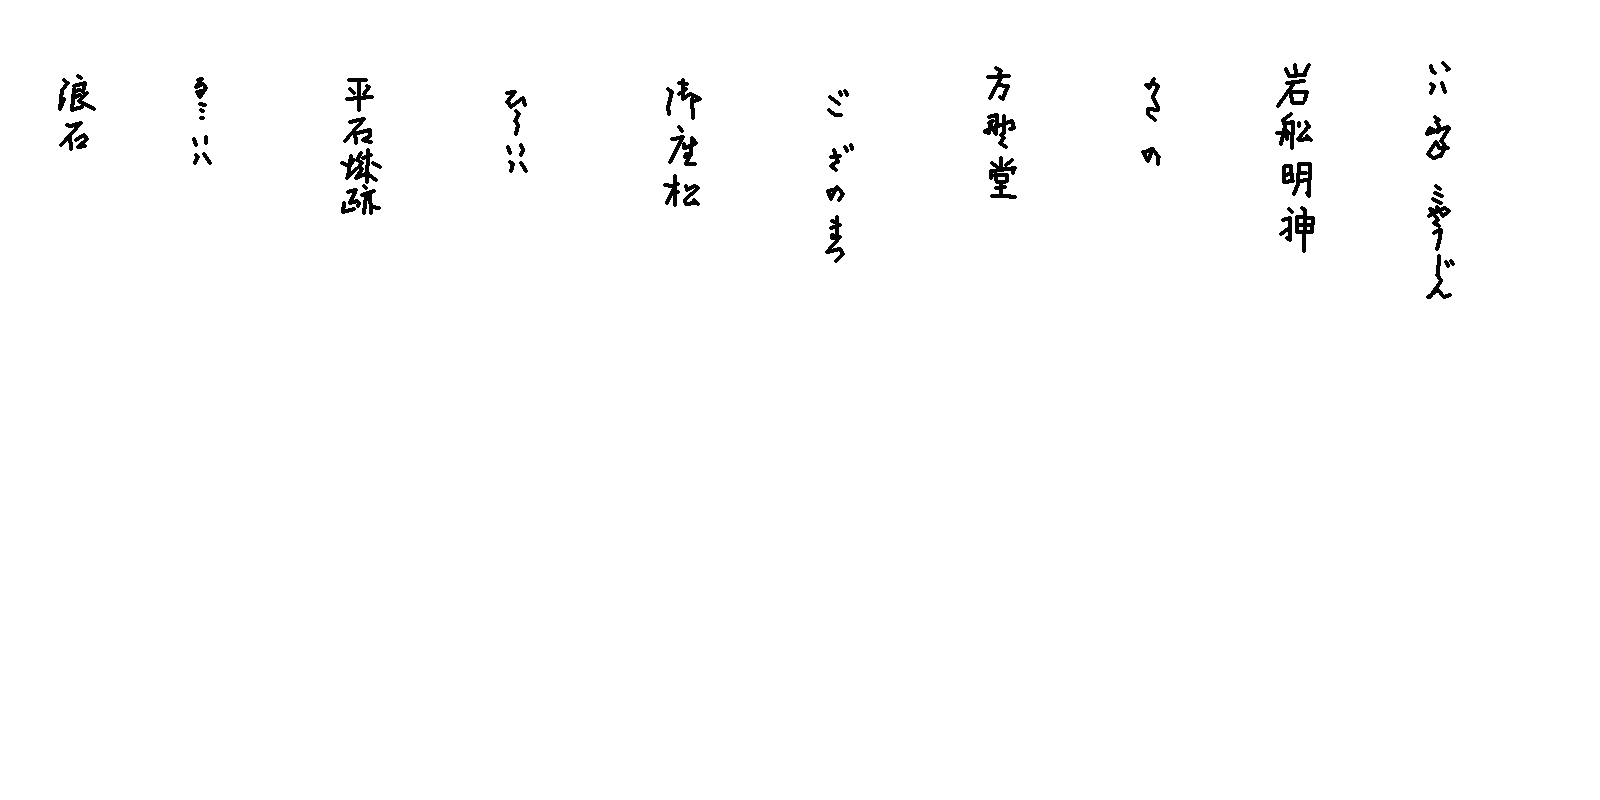 いはふねみやうじん
岩舩明神
かたの
方野堂
ござのまつ
御座松
ひらいは
平石城跡
なみいは
浪石